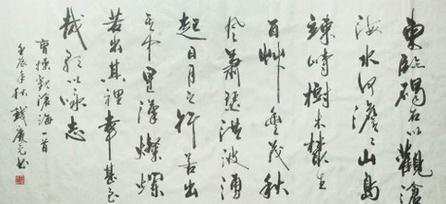 東臨碣石以觀滄
海水何澹々山島
竦峙樹木叢生
百艸豐茂秋
風蕭瑟洪波湧
起日月之行若出
其中星漢燦爛
若出其裡幸甚至
哉歌以咏志
曹操觀滄海一首
壬辰年秋